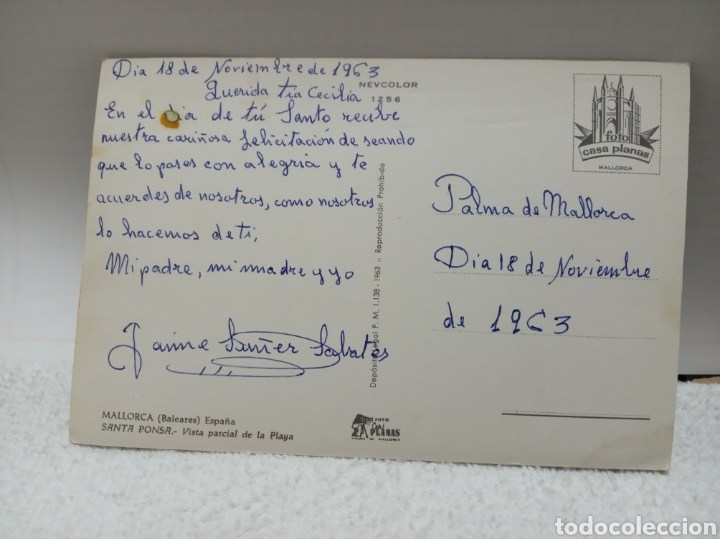 Dia 18 de Noviembre de 1963
Querida tia Cecilia
En el dia de tú Santo recibe
nuestra cariñosa felicitación de seando
que lo pases con alegria y te
acuerdes de nosotros, como nosotros
lo hacemos de ti,
Mi padre, mi madre y yo
Jaime Suñer Sabates
MALLORCA (Baleares) España
SANTA PONSA.- Vista parcial de la Playa
NEVCOLOR
1286
Depósito Legal P. M. 1.138 - 1963 :: Reproducción Prohibida
FOTO
CASA PLANAS
PALMA DE MALLORCA
foto
casa planas
MALLORCA
Palma de Mallorca
Dia 18 de Noviembre
de 1963
todocoleccion